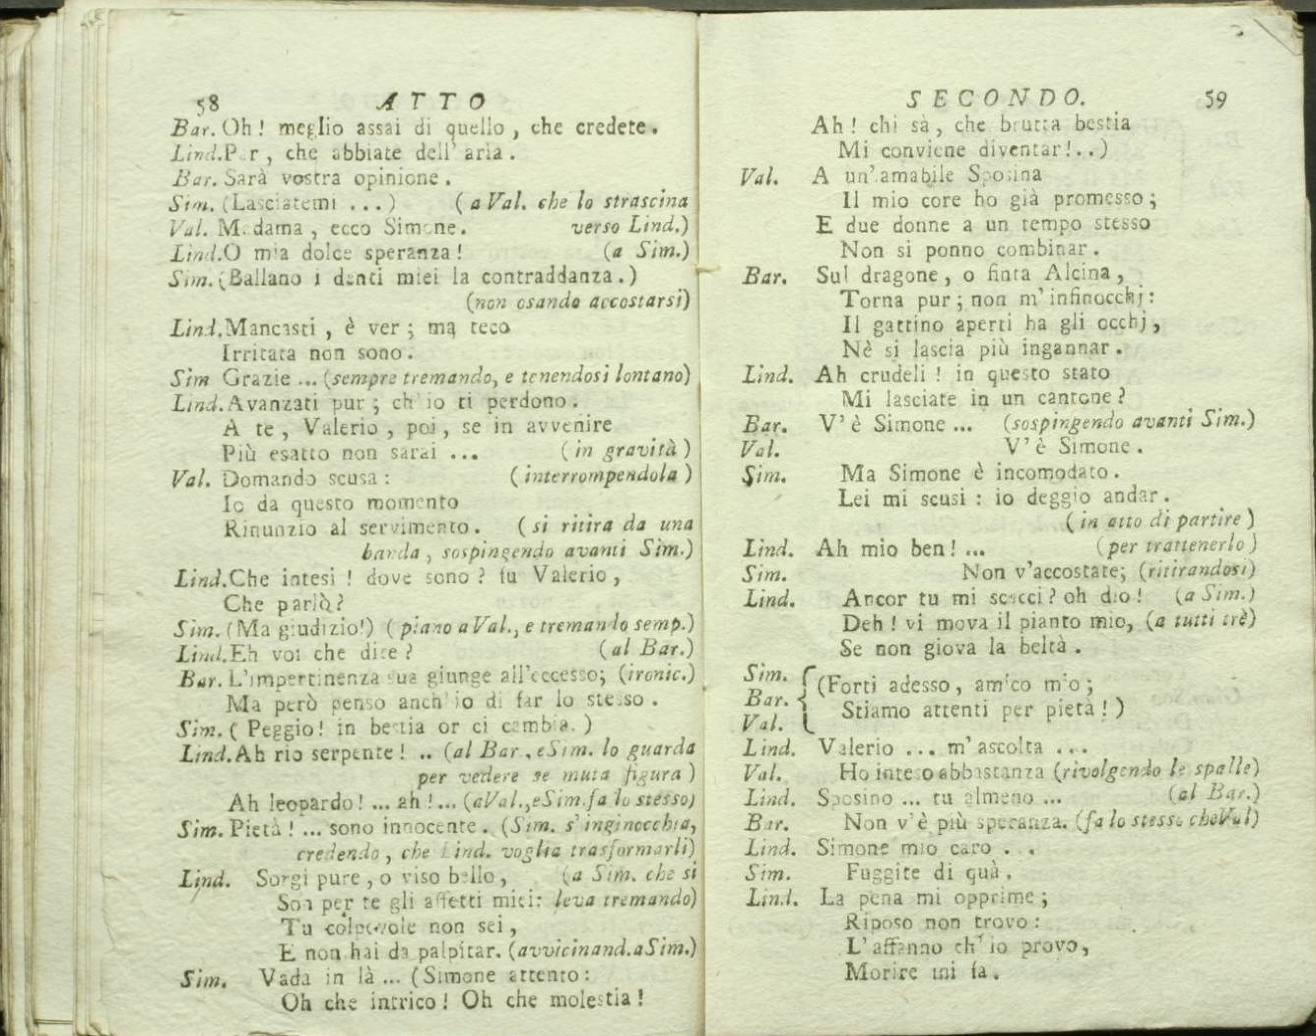 58 ATTO
Bar. Oh! meglio assai di quello, che credete.
Lind. Per, che abbiate dell' aria.
Bar. Sarà vostra opinione.
Sim. (Lasciatemi ...) (a Val. che lo strascina
Val. Madama, ecco Simone. verso Lind.)
Lind. O mia dolce speranza! (a Sim.)
Sim. (Ballano i denti miei la contraddanza.)
(non osando accostarsi)
Lind. Mancasti, è ver; ma teco
Irritata non sono.
Sim Grazie ... (sempre tremando, e tenendosi lontano)
Lind. Avanzati pur; ch' io ti perdono.
A te, Valerio, poi, se in avvenire
Più esatto non sarai ... (in gravità)
Val. Domando scusa: (interrompendola)
Io da questo momento
Rinunzio al servimento. (si ritira da una
banda, sospingendo avanti Sim.)
Lind. Che intesi! dove sono? fu Valerio,
Che parlò?
Sim. (Ma giudizio!) (piano a Val., e tremando semp.)
Lind. Eh voi che dite? (al Bar.)
Bar. L'impertinenza sua giunge all'eccesso; (ironic.)
Ma però penso anch' io di far lo stesso.
Sim. (Peggio! in bestia or ci cambia.)
Lind. Ah rio serpente! .. (al Bar., e Sim. lo guarda
per vedere se muta figura)
Ah leopardo! ... ah! ... (a Val., e Sim. fa lo stesso)
Sim. Pietà! ... sono innocente. (Sim. s' inginocchia,
credendo, che Lind. voglia trasformarli)
Lind. Sorgi pure, o viso bello, (a Sim. che si
Son per te gli affetti miei: leva tremando)
Tu colpevole non sei,
E non hai da palpitar. (avvicinand. a Sim.)
Sim. Vada in là ... (Simone attento:
Oh che intrico! Oh che molestia!
SECONDO. 59
Ah! chi sà, che brutta bestia
Mi conviene diventar!..)
Val. A un' amabile Sposina
Il mio core ho già promesso;
E due donne a un tempo stesso
Non si ponno combinar.
Bar. Sul dragone, o finta Alcina,
Torna pur; non m' infinocchj:
Il gattino aperti ha gli occhj,
Nè si lascia più ingannar.
Lind. Ah crudeli! in questo stato
Mi lasciate in un cantone?
Bar. V' è Simone ... (sospingendo avanti Sim.)
Val. V' è Simone.
Sim. Ma Simone è incomodato.
Lei mi scusi: io deggio andar.
(in atto di partire)
Lind. Ah mio ben! ... (per trattenerlo)
Sim. Non v'accostate; (ritirandosi)
Lind. Ancor tu mi scacci? oh dio! (a Sim.)
Deh! vi mova il pianto mio, (a tutti trè)
Se non giova la beltà.
Sim.
Bar. (Forti adesso, amico mio;
Val. Stiamo attenti per pietà!)
Lind. Valerio ... m' ascolta ...
Val. Ho inteso abbastanza (rivolgendo le spalle)
Lind. Sposino ... tu almeno ... (al Bar.)
Bar. Non v'è più speranza. (fa lo stesso che Val)
Lind. Simone mio caro ...
Sim. Fuggite di quà.
Lind. La pena mi opprime;
Riposo non trovo:
L' affanno ch' io provo,
Morire mi fa.